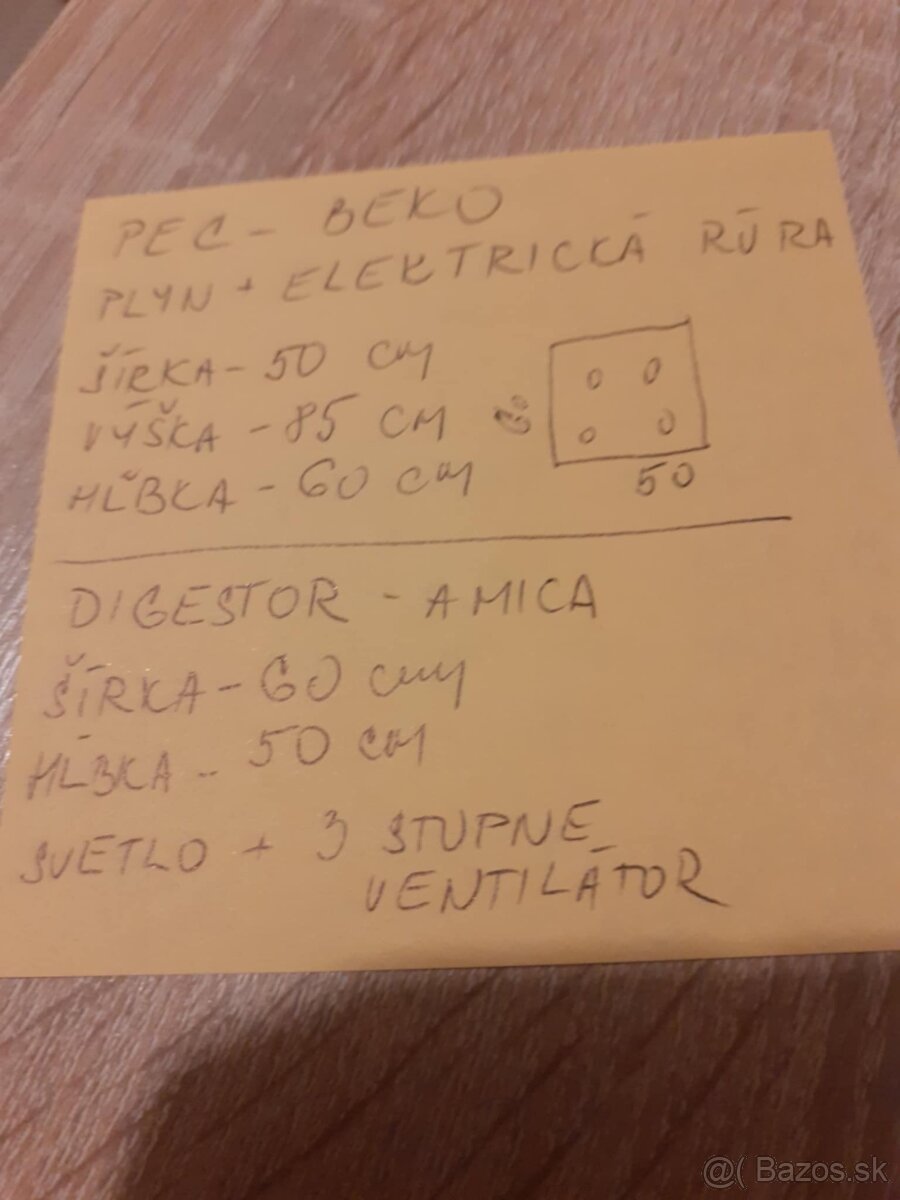 PEC - BEKO
PLYN + ELEKTRICKÁ RÚRA
ŠÍRKA - 50 CM
VÝŠKA - 85 CM
HĽBKA - 60 CM
60
50
DIGESTOR - AMICA
ŠÍRKA - 60 cm
HĹBKA - 50 CM
SVETLO + 3 STUPNE
VENTILÁTOR
@( Bazos.sk